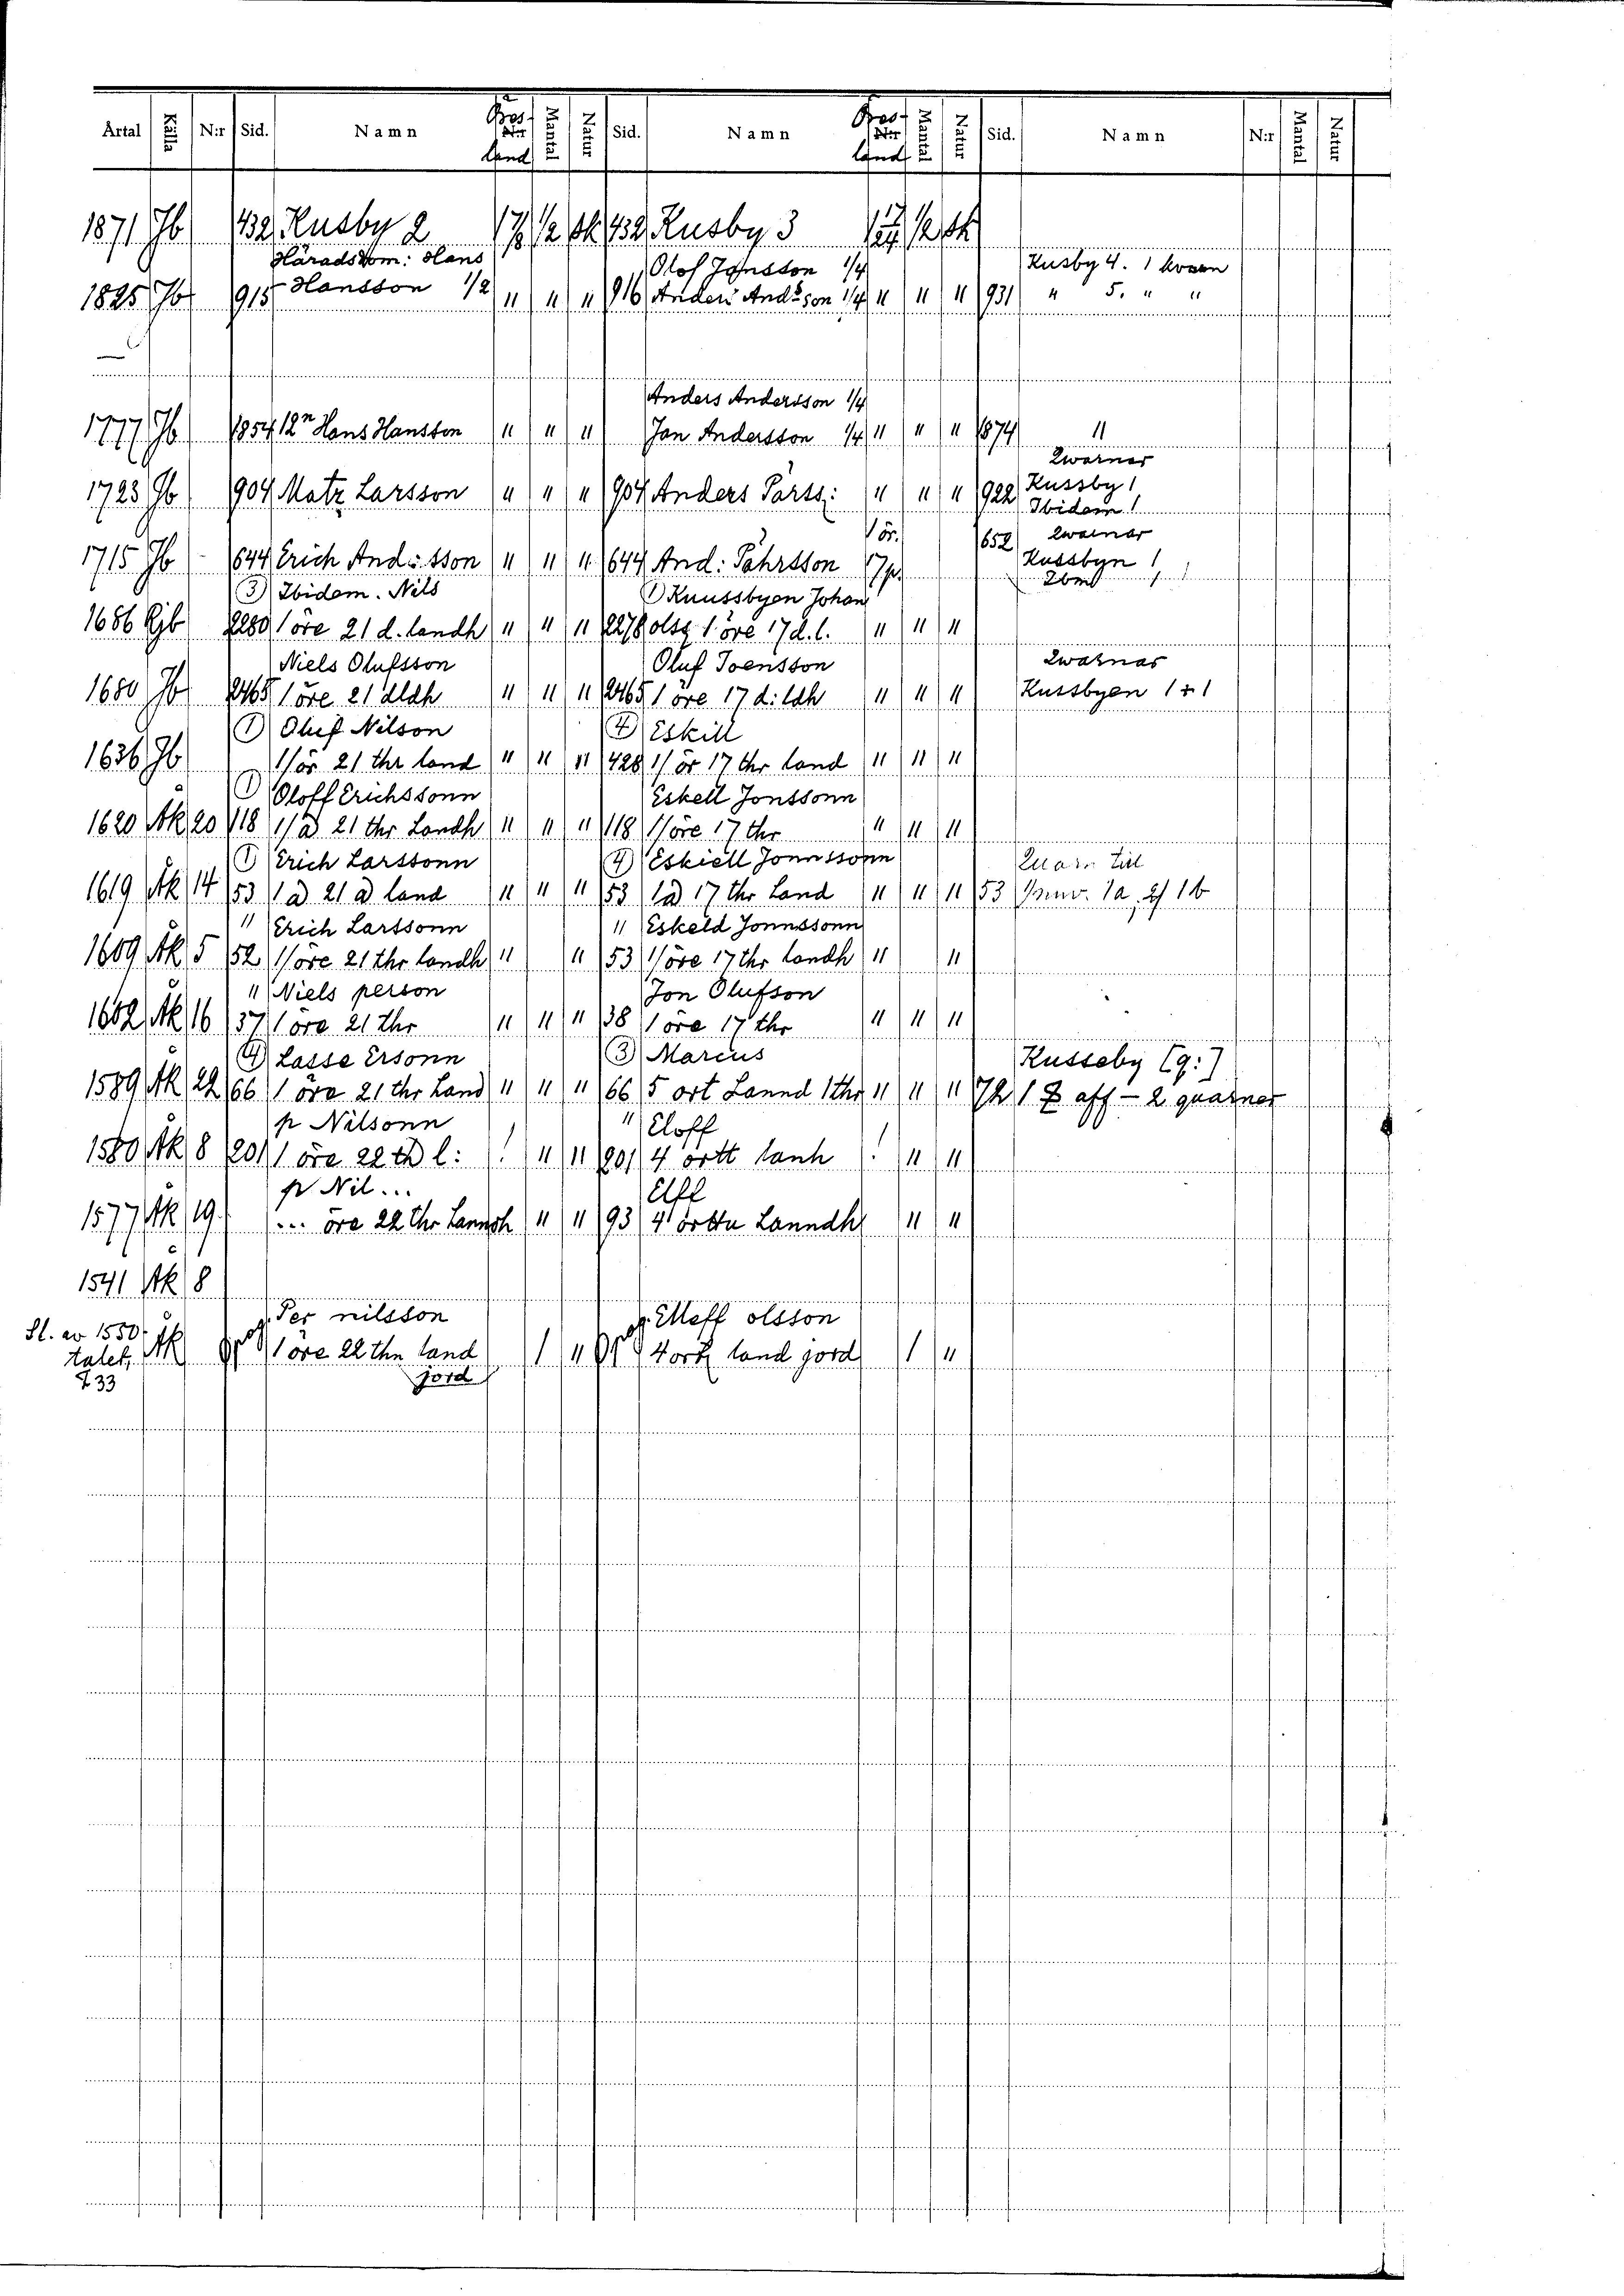 Årtal Källa N:r Sid. Namn land Mantal Natur Sid. Namn land Mantal Natur Sid. Namn N:r Mantal Natur
1871 Jb 432 Kusby 2 1/2 sk 432 Kusby 3 1/2 sk
Häradsdom: Hans Olof Jonsson 1/4 Kusby 4. 1 kvarn
1825 Jb 915 Hansson 1/2 " " " 916 Anders Andsson 1/4 " " " 931 " 5. " "
Anders Andersson 1/4
1777 Jb 1854 12n Hans Hansson " " " Jan Andersson 1/4 " " " 1874 "
Qwarner
1723 Jb 904 Matz Larsson " " " 904 Anders Pärss: " " " 922 Kussby 1
Ibidem 1
1 ör. 652 Qwarnar
1715 Jb 644 Erich And:sson " " " 644 And: Pährsson 17p. Kussbyn 1
Ibm 1
(3) Ibidem. Nils (1) Knussbyen Johan
1686 Rjb 2280 1 öre 21 d. landh " " " 2278 olsz 1 öre 17 d. l. " " "
Niels Olufsson Oluf Joensson Qwarnar
1680 Jb 2465 1 öre 21 dldh " " " 2465 1 öre 17 d: ldh " " " Kussbyen 1 + 1
(1) Oluf Nilson (4) Eskill
1636 Jb 1/ör 21 thr land " " " 428 1/ ör 17 thr land " " "
(1) Oloff Erichssonn Eskell Jonssonn
1620 ÅK 20 118 1/ a 21 thr Landh " " " 118 1/öre 17 thr " " "
(1) Erich Larssonn (4) Eskiell Jonnssonn Quarn till
1619 ÅK 14 53 1 a 21 a land " " " 53 1a 17 thr Land " " " 53 1a, 1b
" Erich Larssonn " Eskeld Jonnssonn
1609 ÅK 5 52 1/öre 21 thr landh " " 53 1/öre 17 thr landh " "
" Niels person Jon Olufson
1602 ÅK 16 37 1 öre 21 thr " " " 38 1 öre 17 thr " " "
(4) Lasse Ersonn (3) Marcus Kusseby [q:]
1589 ÅK 22 66 1 öre 21 thr Land " " " 66 5 ort Lannd 1 thr " " " 72 1 aff - 2 quarner
p Nilsonn " Eloff
1580 ÅK 8 201 1 öre 22 th l: ! " " 201 4 ortt lanh ! " "
p Nil... Elff
1577 ÅK 19 ... öre 22 thr Lanndh " " 93 4 örtta Lanndh " "
1541 ÅK 8
Sl. av 1550- Per nilsson Elleff olsson
talet, ÅK 1 öre 22 thn land 1 " 4 ort land jord 1 "
233 jord